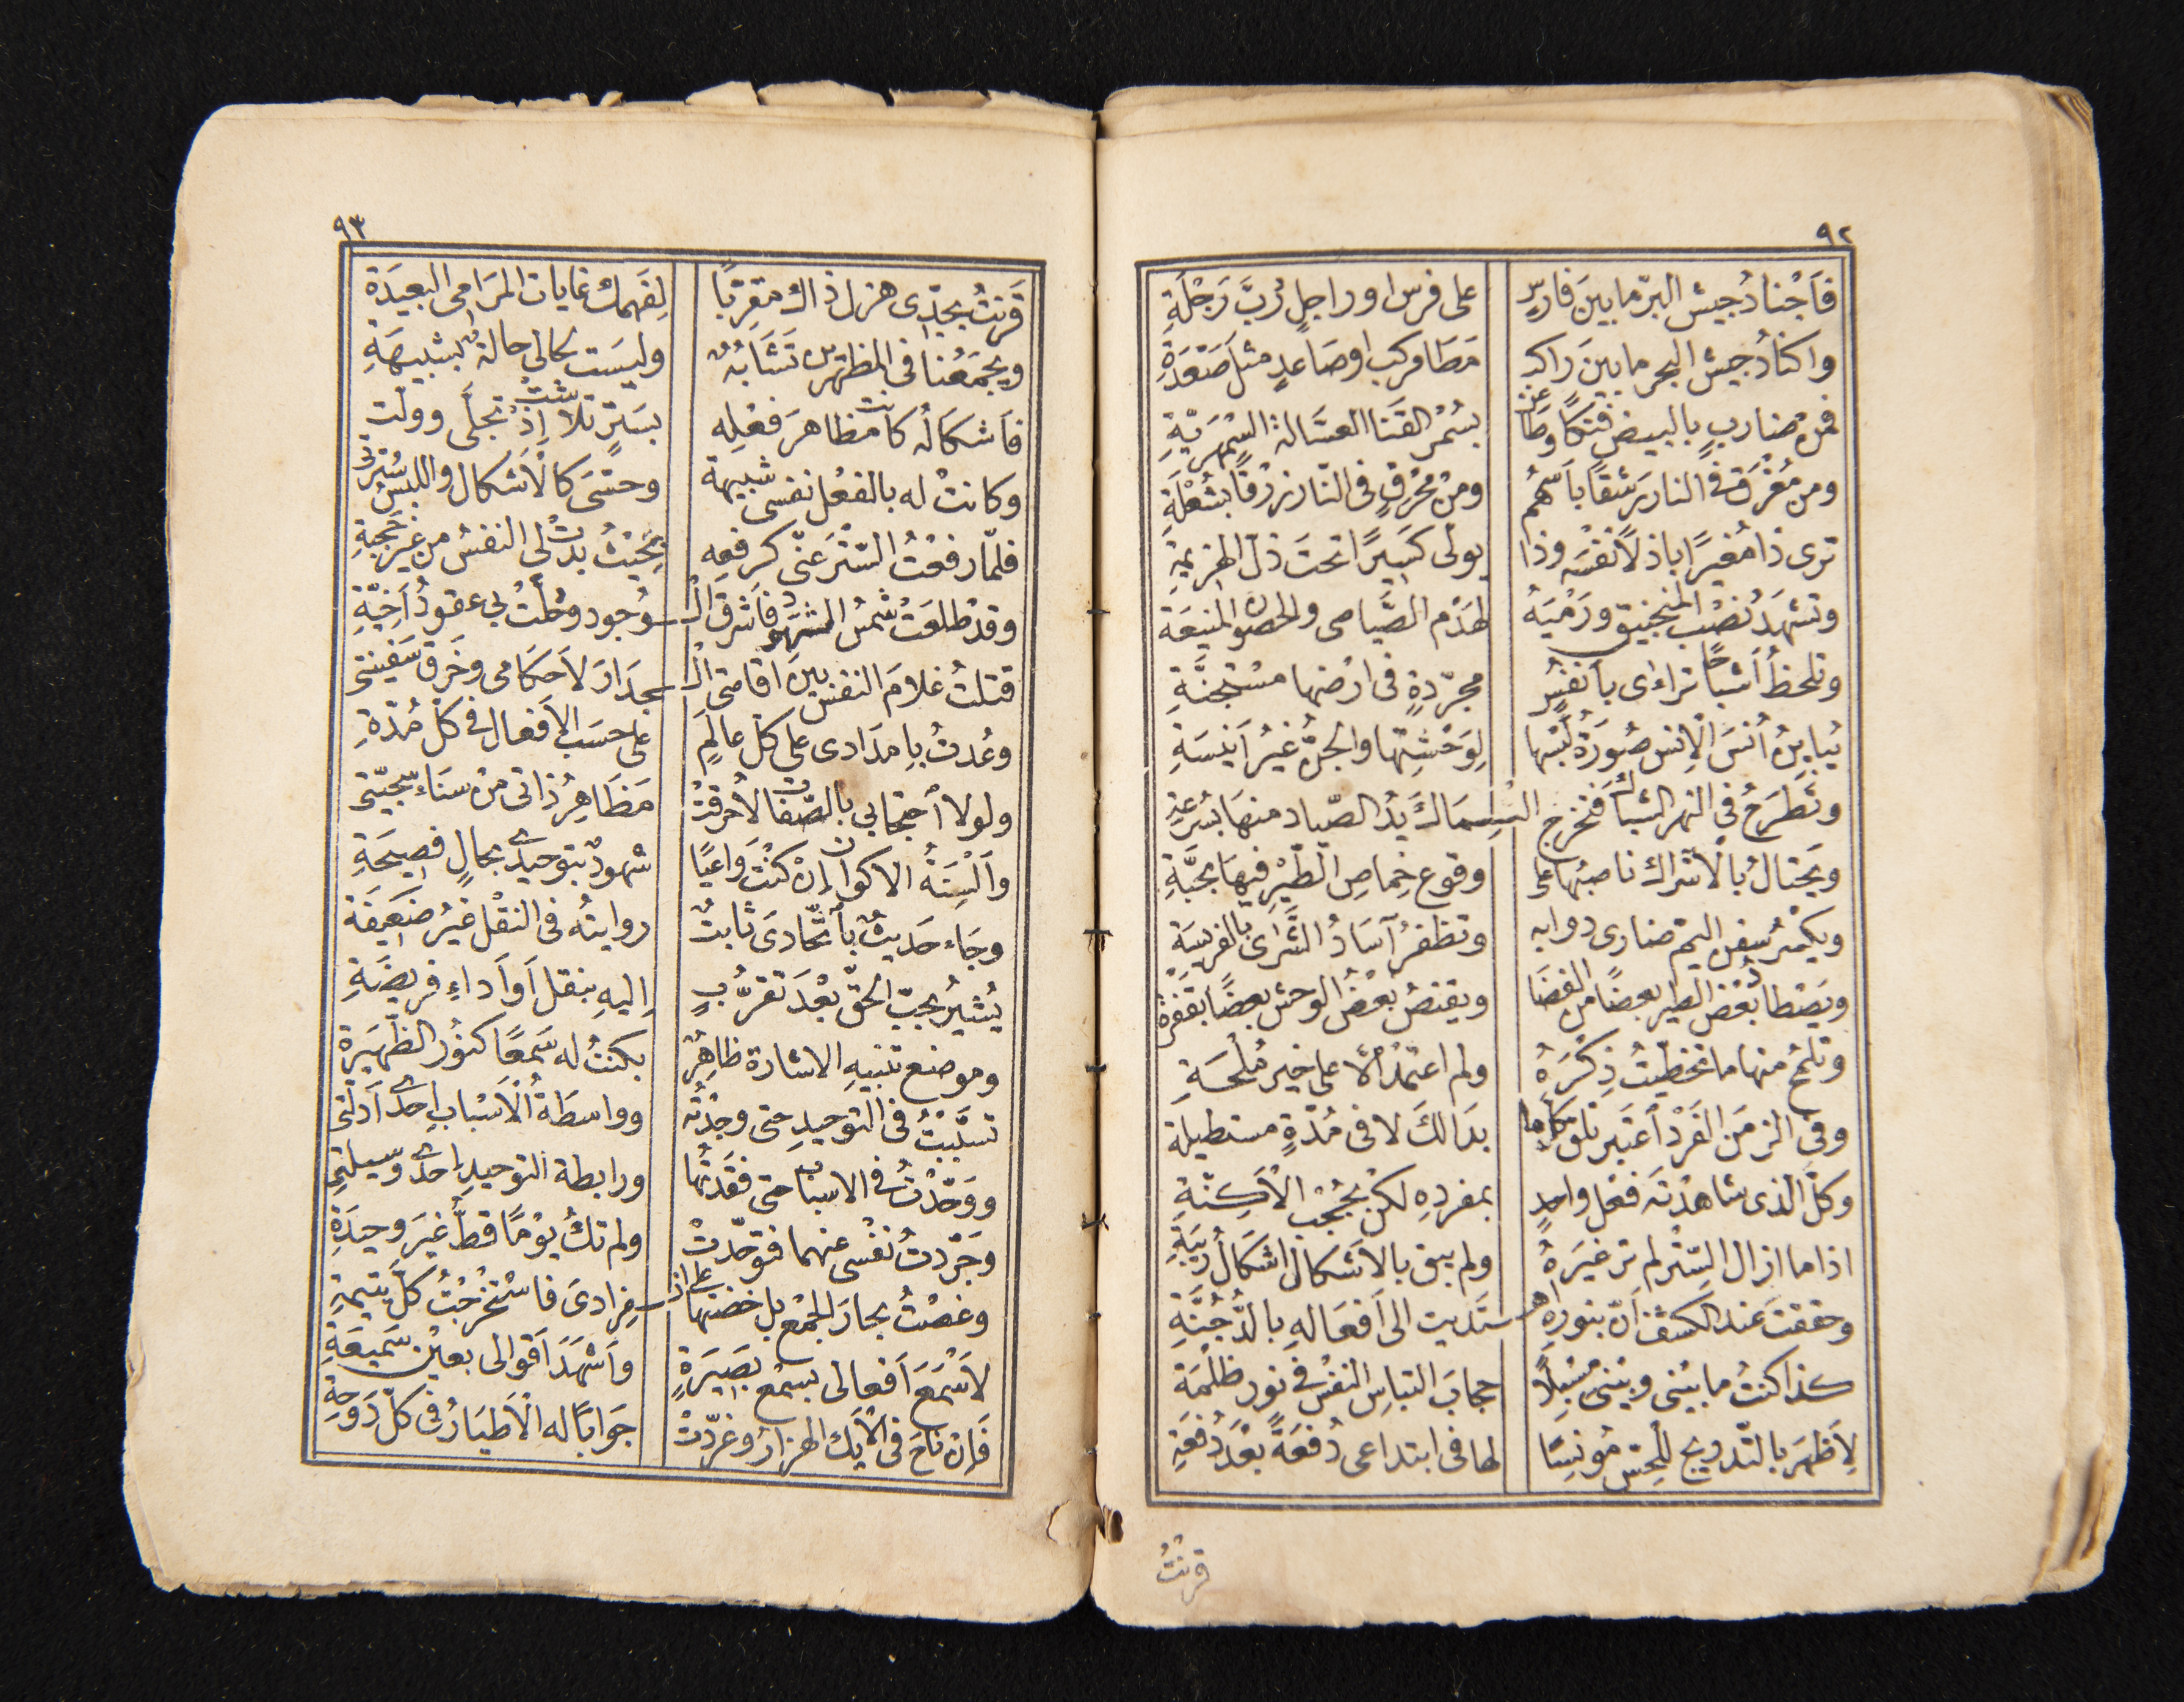 ٩٢
فَاَجْنادُ جيش البرّ ما بينَ فارسٍ على فرس او راجلٍ رُبَّ رَجْلَةِ
واكنادُ جيش البحر ما بينَ راكبٍ مَطَا مركب او صَاعدٍ مثلَ صَعْدَةِ
فمن ضاربٍ بالبيض فتكًا وطاعنٍ بسُمْر القَنا العسَّالة السَّمْهَريّةِ
ومن مُغْرَق فى النار رَشقًا باَسْهُم ومنْ مُحْرَقٍ فى النّار زرْقًا بشُعْلَةِ
ترى ذا مُغيرًا باذلاً نفْسَه وذا يولّى كسَيرًا تحتَ ذلّ الهزيمةِ
وتشهَدُ نصْبَ المنجنيق ورَمْيَهُ لهَدْم الصَّياصى والحصون المنيعَة
وتلحظُ اَشباحًا تراءى باَنفُسٍ مجرّدةٍ فى ارْضها مسْتجنَّةِ
تُباينُ اُنسَ الاِنس صُورَةُ لَبْسها لِوَحْشِتها والجنُّ غيرُ اَنيسَةِ
وتطرَحُ فى النهر الشباكَ فَتخْرج السْسِمَاكَ يدُ الصّياد منها بسُرعةِ
ويَحتالُ بالاَشراك ناصبُها على وقوع خِماصِ الطّيْر فيهَا بحَبَّةِ
ويكْسرُ سفنَ اليمّ ضارى دوابه وتظفرُ آسَادُ الشَّرَى بالفريسَة
ويَصْطادُ بَعْضُ الطير بعضًا من الفضَا ويقنصُ بعْضُ الوحش بعضًا بقَفْرةِ
وتلمحُ منها ما تخطّيتُ ذِكْرَهُ ولم اعتمدْ الاّ على خير مُلْحَةِ
وفى الزمَن الفَرْد اَعتَبر تلقَ كلّ ما بدَا لكَ لا فى مُدّةٍ مستطيلة
وكلّ الّذى شاهدْتَه فعْل واحدٍ بمفردِه لكن بحُجْب الاَكِنّةِ
اذا ما ازال السِّتْرَ لم تر غيْرَهُ ولم يبق بالاَشكال اشكَالُ ريبَةِ
وحققتَ عند الكشف اَنّ بنورِه اهـ ـتَديت الى اَفعَالهِ بالدُّجُنَّةِ
كذا كنتُ ما بيْنى وبيْنى مُسْبِلاً حجابَ التباسِ النفسْ فى نور ظلْمَةِ
لِاَظهَرَ بالتّدريج للحِسّ مُؤنسًا لها فى ابتداعى دُفعَةً بعْدَ دُفعَةِ
قرنتُ
٩٣
قَرَنتُ بجِدّى هزل ذاك مقرّبًا لِفَهمك غايات المَرَامى البعيَدَة
ويجمَعُنا فى المظهرين تشَابُهٌ وليسَت لحالى حالةٌ بشبيهَةِ
فاَشكالُه كانت مظاهرَ فعْلِه بسَترٍ تلاشت اِذْ تجلّى وولّت
وكانتْ له بالفعْل نفسى شبيهة وحسّى كالاَشكال واللبسُ سُترتى
فلمّا رفعْتُ السّتْرَ عنّى كرفعِه بحيْثُ بدَتْ لى النفسُ من غير حُجْبةِ
وقدْ طلعَتْ شمسُ الشهود فاَشرق الْـ ـوُجود وحُلّتْ بى عقودُ اَخيَّةِ
قتلتُ غلامَ النفس بينَ اقامتى الْـ ـجدَارَ لاَحكامى وخَرق سَفينتى
وعُدتُ باِمدَادى على كلّ عالَمٍ على حسَب الاَفعال فى كلّ مُدّةِ
ولولا اَحتجابى بالصّفات لاُحرقتْ مَظَاهرُ ذاتى منْ سَنَاءِ سَجيّتى
وَاَلْسِنَةُ الاكوان اِنْ كنْتَ وَاعيًا شهودٌ بتوحيدى بحالٍ فصيحَةِ
وجَاءَ حَديثٌ باَتّحادىَ ثابتٌ روايتُه فى النقْل غيرُ ضَعيفَة
يُشيرُ بحبّ الحقّ بعْدَ تَقرُّبٍ اِليهِ بنقل اَو اَداءِ فريضَةِ
وموضع تنبيهِ الاشارة ظاهِرٌ بكنتُ له سَمعًا كنوُر الظّهيَرة
تسبَّبتُ فى التوحيدِ حتى وجدْتُه وواسطَةُ الْاَسْبابِ احدى اَدلّتى
ووَحّدْتُ فى الاسباب حتى فقَدتُها ورابطة التوحيدِ احدى وسيلتى
وجَرّدتُ نفْسى عنهما فتوحّدتْ ولم تكُ يوْمًا قطُّ غيرَ وحيدَةِ
وغصْتُ بحارَ الجَمْع بل خضتها على انـ ـفرادىَ فاسْتخْرجْتُ كلّ يتيمةِ
لاَسْمَعَ اَفعالى بسمْع بصَيرَةٍ واَشهَدَ اَقوالى بعيْنٍ سَميعَةِ
فَاِن ناحَ فى الاَيك الهزارُ وغرّدتْ جَوابًا له الاَطيَارُ فى كلّ دَوحةِ